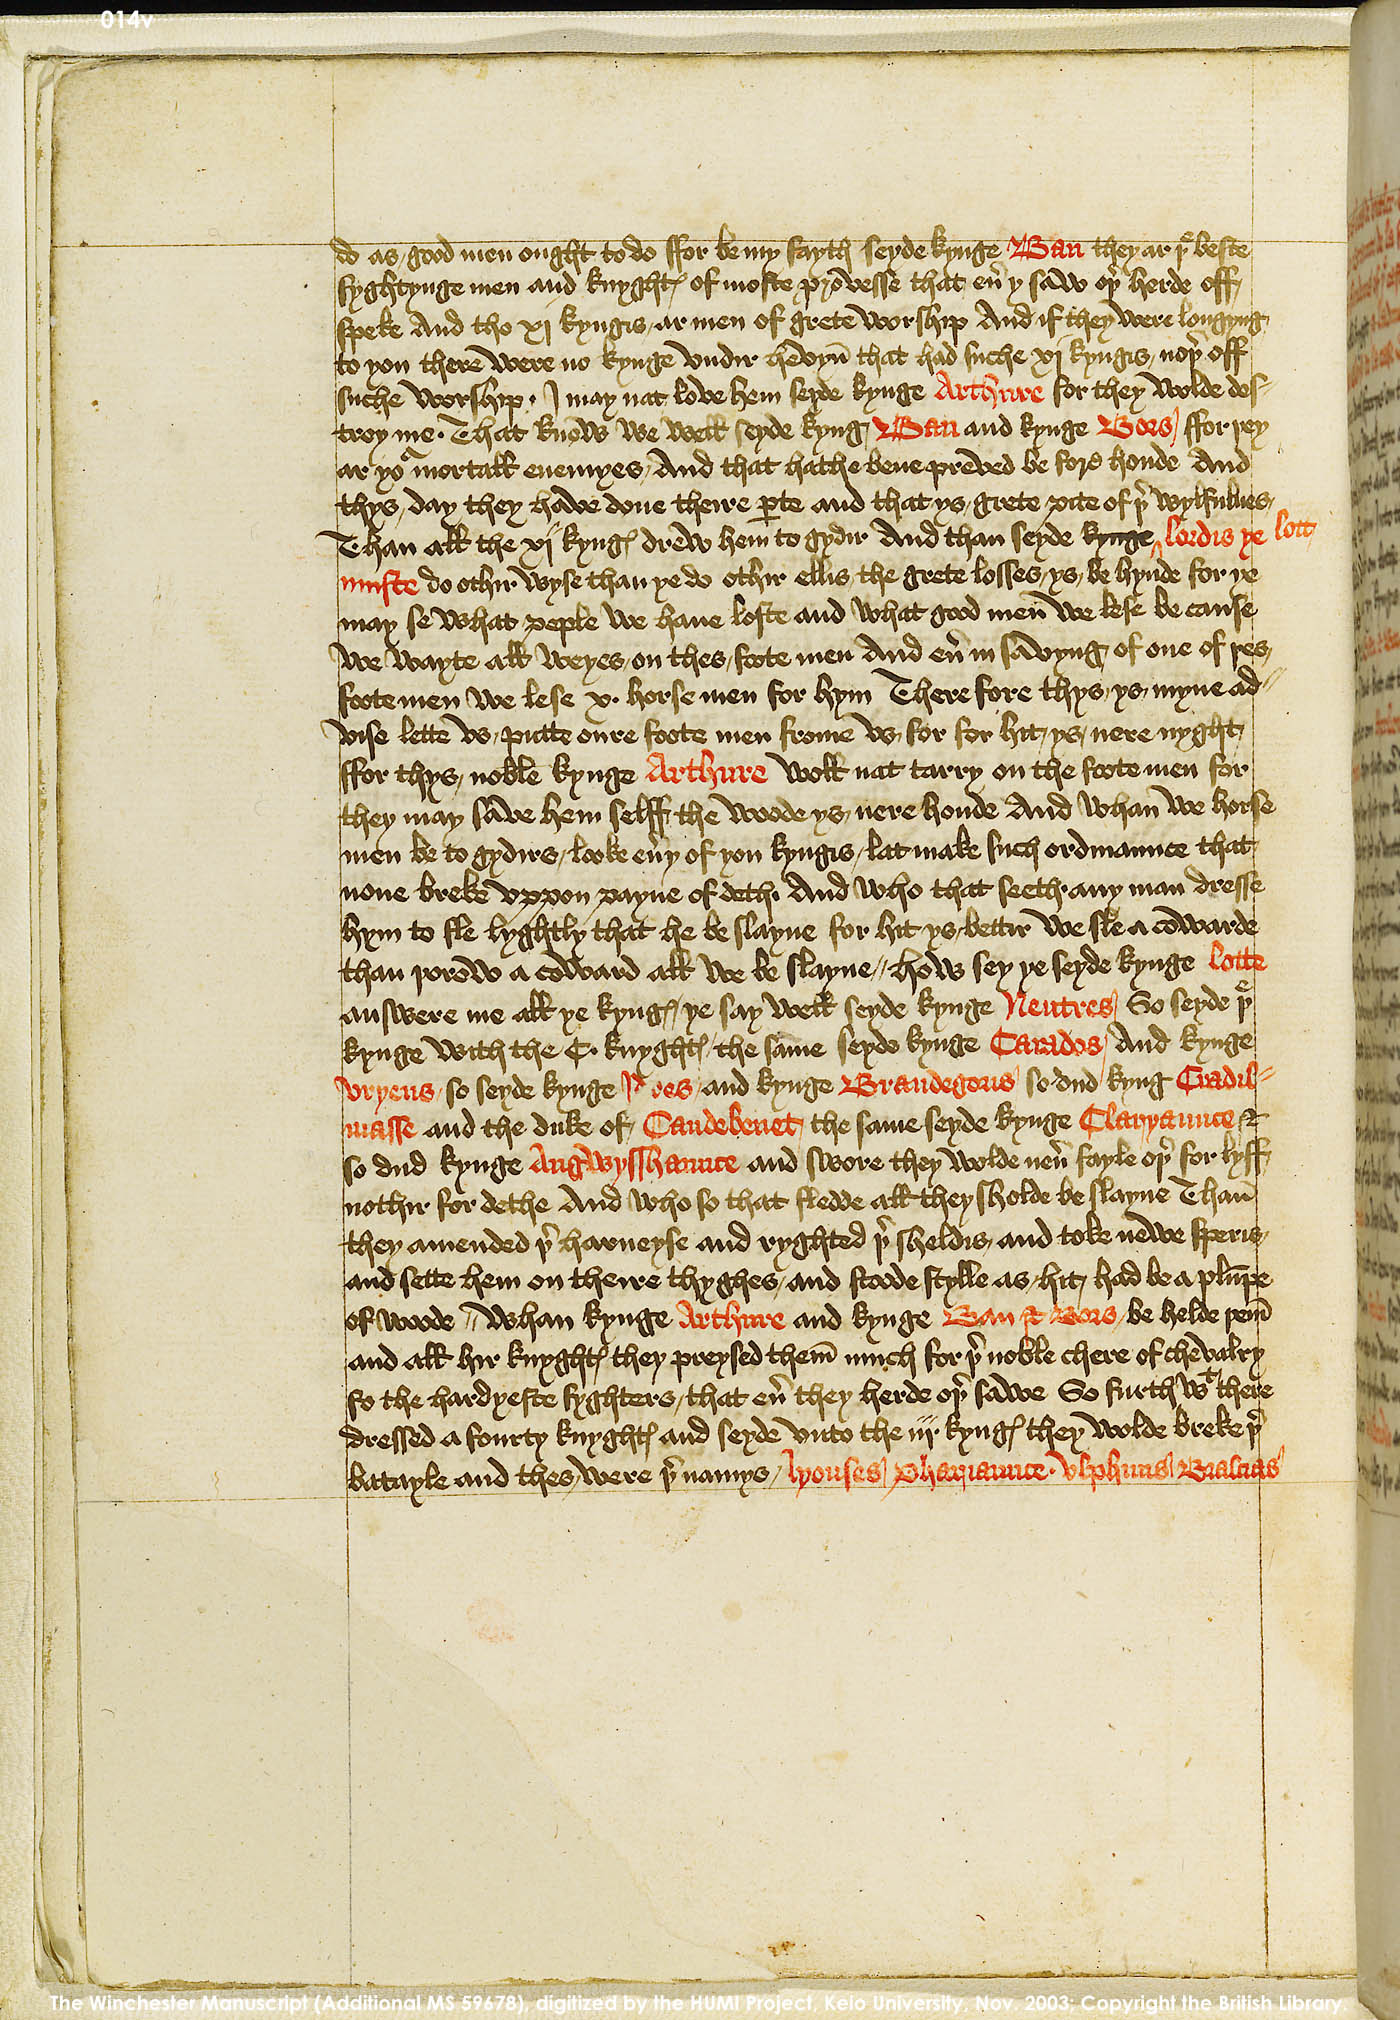 014v
do as good men ought to do ffor be my fayth seyde kynge Ban they ar þe beste
fyghtynge men and knyghtes of moste prouesse that eu͛ y saw oþ͛ herde off
speke And tho xj kyngis ar men of grete worship And if they were longyng
to you there were no kynge vndir hevyn̄ that had suche xj kyngis noþ͛ off
suche worship. I may nat love hem seyde kynge Arthure for they wolde des-
troy me. That know we well seyde kyng Ban and kynge Bors ffor þey
ar yoʳ mortall enemyes And that hathe bene preved be fore honde And
thys day they have done theire ꝑte and that ys grete pite of þ͛ wylfulnes
Than all the xj kynges drew hem to gydir And than seyde kynge lordis ye lott
muste do othir wyse than ye do othir ellis the grete losses ys be hynde for ye
may se what peple we haue loste and what good men̄ we lese be cause
we wayte all weyes on thes foote men And eu͛ in savyng of one of þes
foote men we lese x. horse men for hym There fore thys ys myne ad-
vise lette vs putte oure foote men frome vs for for hit ys nere nyght
ffor thys noble kynge Arthure woll nat tarry on the foote men for
they may save hem selff the woode ys nere honde And whan we horse
men be to gydirs looke eu͛y of you kyngis lat make such ordinaunce that
none breke vppon payne of deth. And who that seeth any man dresse
hym to fle lyghtly that he be slayne for hit ys bettir we sle a cowarde
than þorow a coward all we be slayne // how sey ye seyde kynge lotte
answere me all ye kynges ye say well seyde kynge Neutres So seyde þe
kynge with the C. knyghtes the same seyde kynge Carados And kynge
vryens so seyde kynge Idres and kynge Brandegoris so dud kyng Cradil-
masse and the duke of Candebenet the same seyde kynge Claryaunce &
so dud kynge Angwysshaunce and swore they wolde neu͛ fayle oþ͛ for lyff
nothir for dethe And who so that fledde all they sholde be slayne Than̄
they amended þ͛ harneyse and ryghted þ͛ sheldis and toke newe speris
and sette hem on theire thyghes and stoode stylle as hit had be a plūpe
of woode // Whan kynge Arthure and kynge Ban & Bors be helde þem̄
and all hir knyghtes they preysed them̄ much for þ͛ noble chere of chevalry
fo the hardyeste fyghters that eu͛ they herde oþ͛ sawe So furth wᵗ there
dressed a fourty knyghtes and seyde vnto the iij kynges they wolde breke þ͛
batayle and thes were þ͛ namys lyonses phariaunce. vlphuns Brastias
The Winchester Manuscript (Additional MS 59678), digitized by the HUMI Project, Keio University, Nov. 2003; Copyright the British Library.